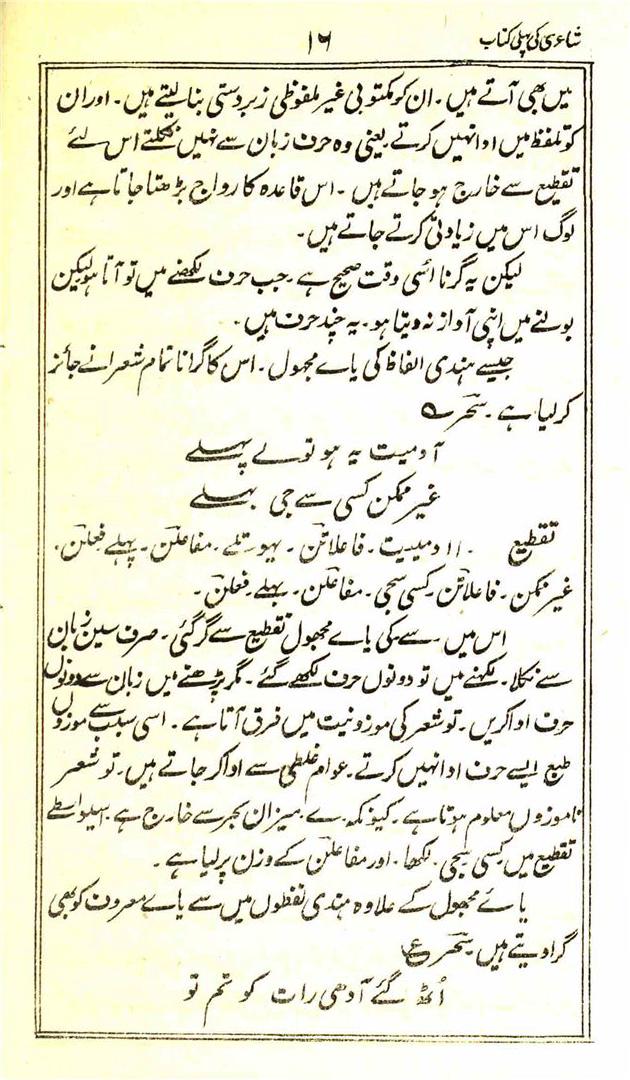 شاعری کی پہلی کتاب
۱۶
میں بھی آتے ہیں۔ ان کو مکتوبی غیر ملفوظی زبردستی بنا لیتے ہیں۔ اور ان
کو تلفظ میں ادا نہیں کرتے یعنی وہ حرف زبان سے نہیں نکلتے اس لئے
تقطیع سے خارج ہو جاتے ہیں ۔ اس قاعدہ کا رواج بڑھتا جاتا ہے اور
لوگ اس میں زیادتی کرتے جاتے ہیں۔
لیکن یہ گرنا اسی وقت صحیح ہے ۔ جب حرف لکھنے میں تو آتا ہو لیکن
بولنے میں اپنی آواز نہ دیتا ہو۔ یہ چند حرف ہیں۔
جیسے ہندی الفاظ کی یاے مجہول۔ اس کا گرانا تمام شعرا نے جائز
کر لیا ہے ۔ سحر ؎
آدمیت یہ ہو تو لے پہلے
غیر ممکن کسی سے جی بہلے
تقطیع ۔ ا ا دمیت ۔ فاعلاتن ۔ یہو تلے ۔ مفاعلن ۔ پہلے فعلن ۔
غیر ممکن ۔ فاعلاتن ۔ کسی سجی ۔ مفاعلن ۔ بہلے ۔ فعلن ۔
اس میں ۔ سے کی یاے مجہول تقطیع سے گر گئی ۔ صرف سین زبان
سے نکلا ۔ لکھنے میں تو دونوں حرف لکھے گئے ۔ مگر پڑھنے میں زبان سے دونوں
حرف ادا کریں ۔ تو شعر کی موزونیت میں فرق آتا ہے ۔ اسی سبب سے موزوں
طبع ایسے حرف ادا نہیں کرتے ۔ عوام غلطی سے ادا کر جاتے ہیں ۔ تو شعر
ناموزوں معلوم ہوتا ہے ۔ کیونکہ ۔ ے ۔ میزان بحر سے خارج ہے ۔ اسیواسطے
تقطیع میں کسی سجی ۔ لکھا ۔ اور مفاعلن کے وزن پر لیا ہے ۔
یاے مجہول کے علاوہ ہندی لفظوں میں سے یاے معروف کو بھی
گرا دیتے ہیں ۔ سحر ع
اُٹھ گئے آدھی رات کو تم تو